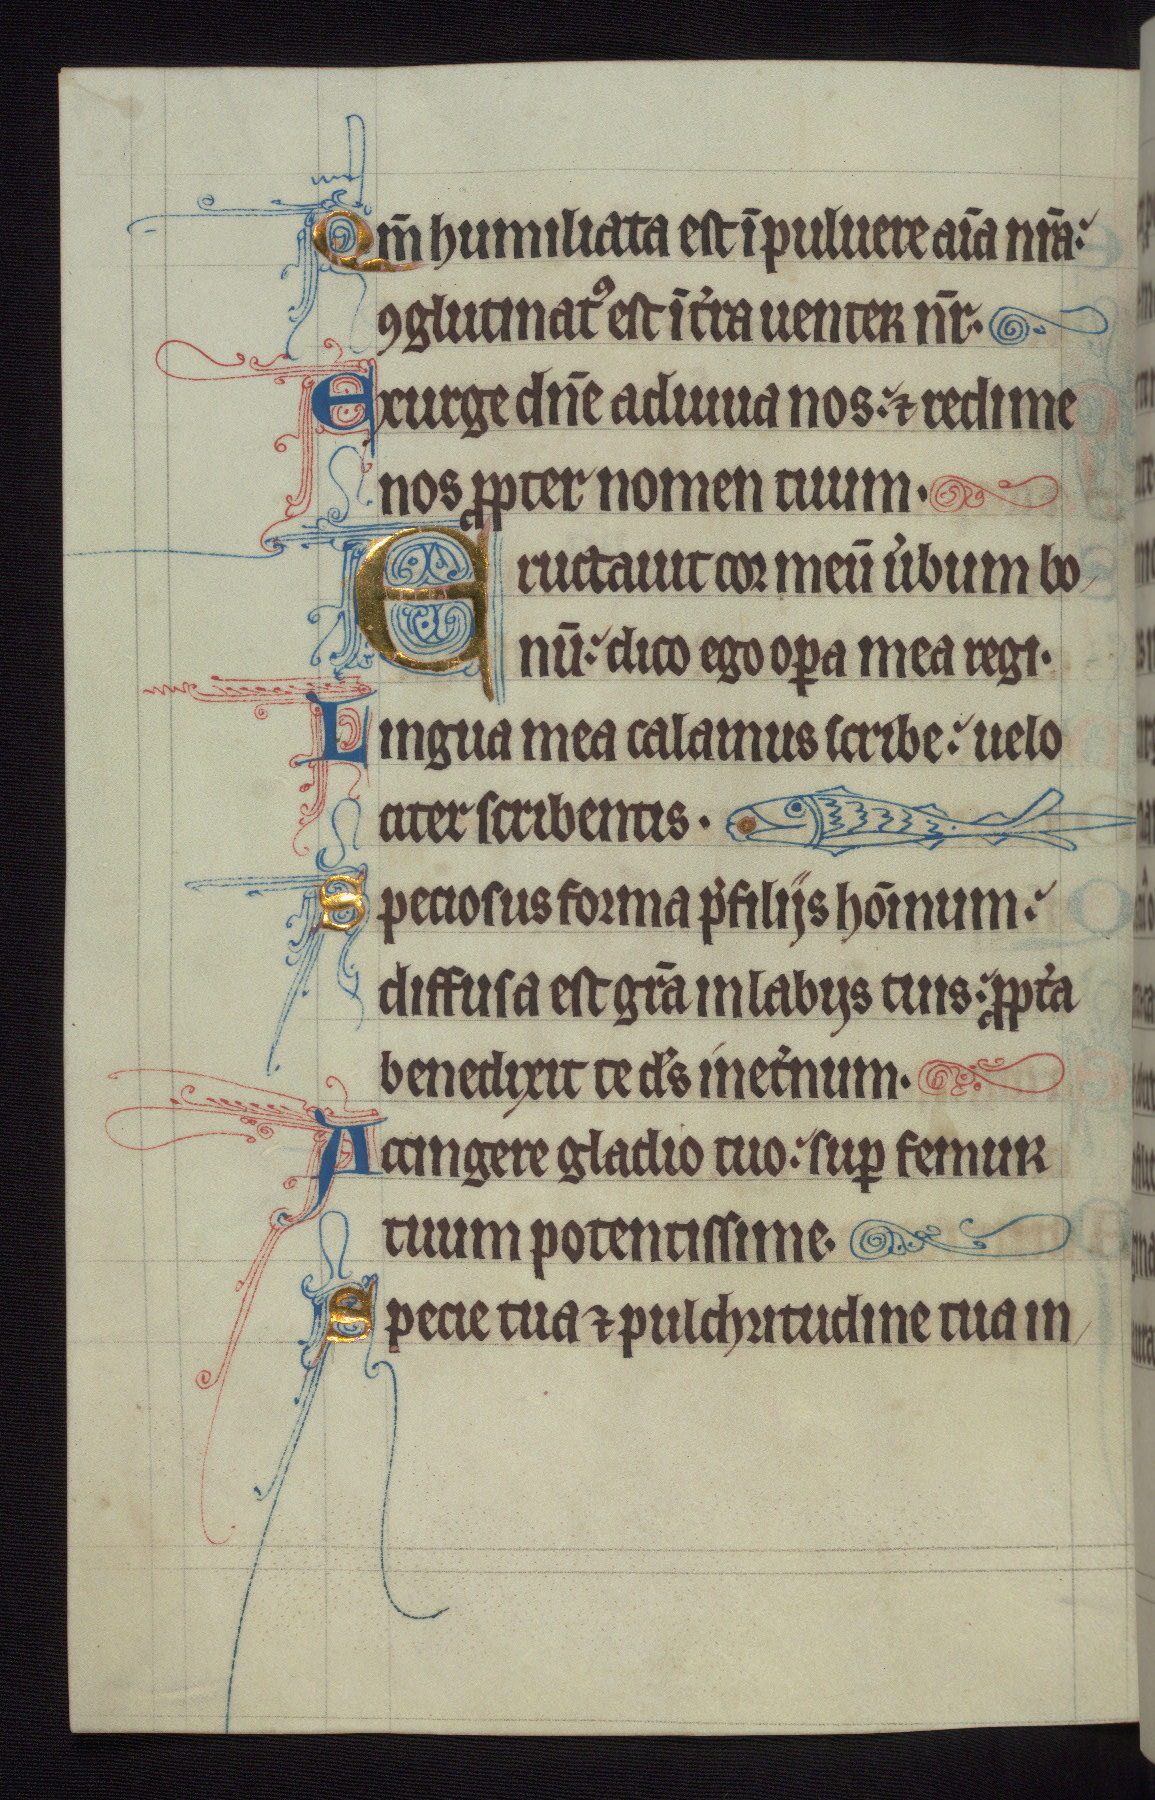 Qm̄ humiliata est ī puluere aīa nr̄a:
ꝯglutinatꝰ est ī t̓ra uenter nr̄.
Exurge dn̄e adiuua nos: ⁊ redime
nos ꝓpter nomen tuum.
Eructauit cor meū u̓bum bo
nū: dico ego oꝑa mea regi.
Lingua mea calamus scribe: uelo
citer scribentis.
Speciosus forma p̓ filijs hōinum:
diffusa est gr̄a in labijs tuis: ꝓpt̓a
benedixit te ds̓ in et̓num.
Accingere gladio tuo: suꝑ femur
tuum potentissime.
Specie tua ⁊ pulchritudine tua in